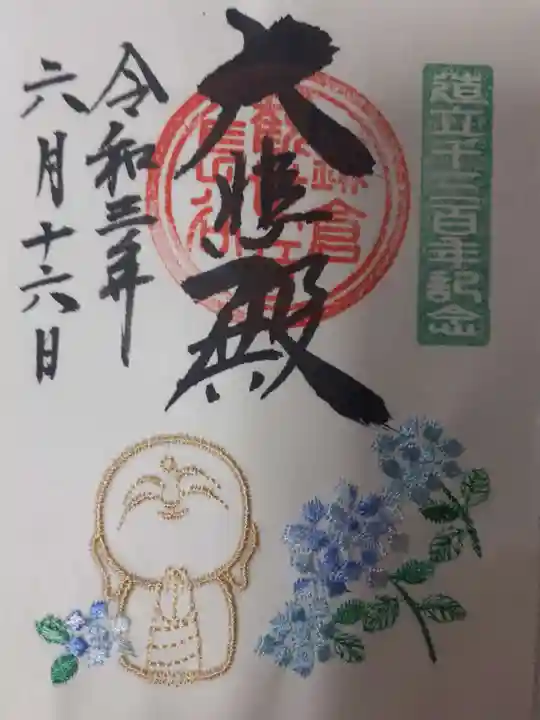 造立千三百年記念
大悲殿
鎌倉
令和三年
六月十六日